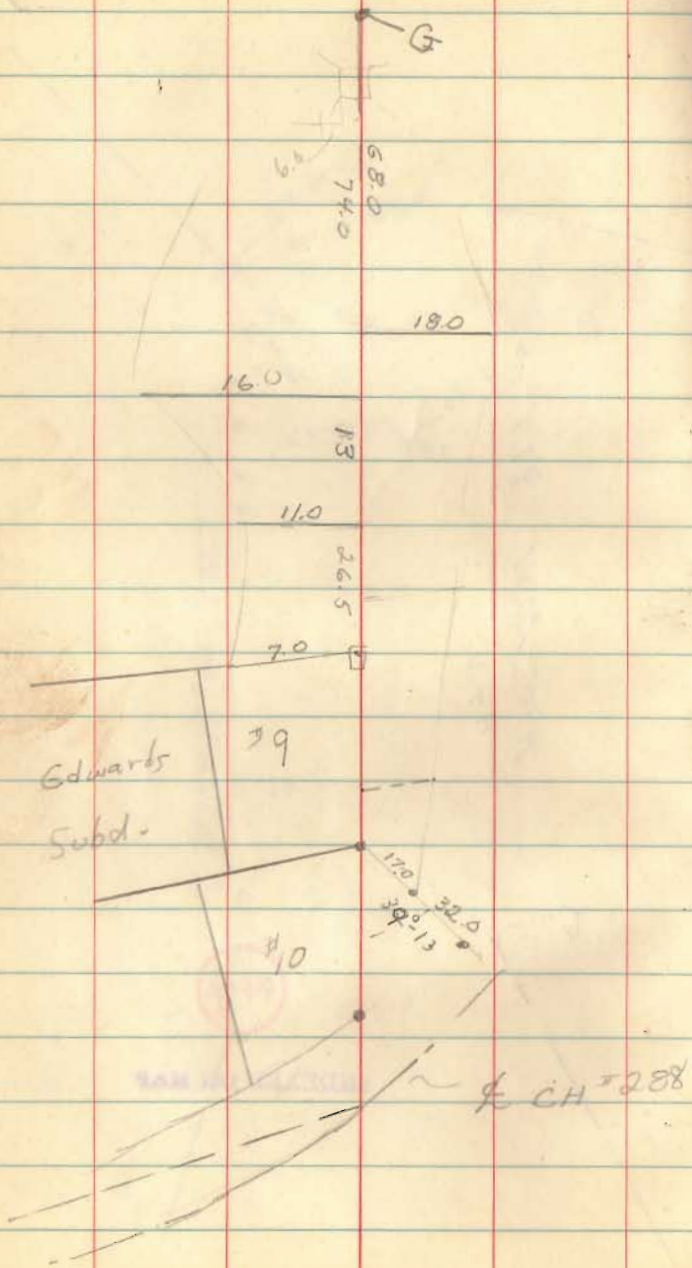 G
6.0
68.0
74.0
18.0
16.0
13
11.0
26.5
7.0
#9
Edwards
Subd.
17.0
32.0
39°-13'
#10
℄ CH #288